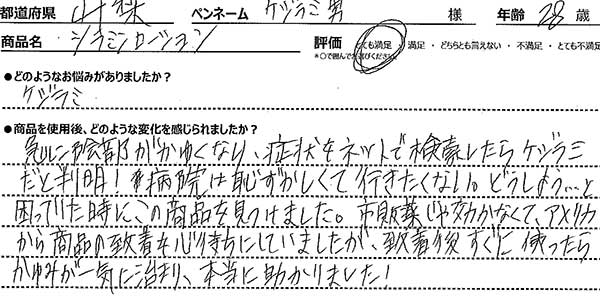 都道府県 山梨 ペンネーム ケジラミ男 様 年齢 28 歳
商品名 シラミローション 評価 とても満足 ・ 満足 ・ どちらとも言えない ・ 不満足 ・ とても不満足
*○で囲んでお選びください
●どのようなお悩みがありましたか?
ケジラミ
●商品を使用後、どのような変化を感じられましたか?
急に陰部がかゆくなり、症状をネットで検索したらケジラミ
だと判明!病院は恥ずかしくて行きたくない。どうしよう…と
困っていた時に、この商品を見つけました。市販薬じゃ効かなくて、アメリカ
から商品の到着を心待ちにしていましたが、到着後すぐに使ったら
かゆみが一気に治まり、本当に助かりました!